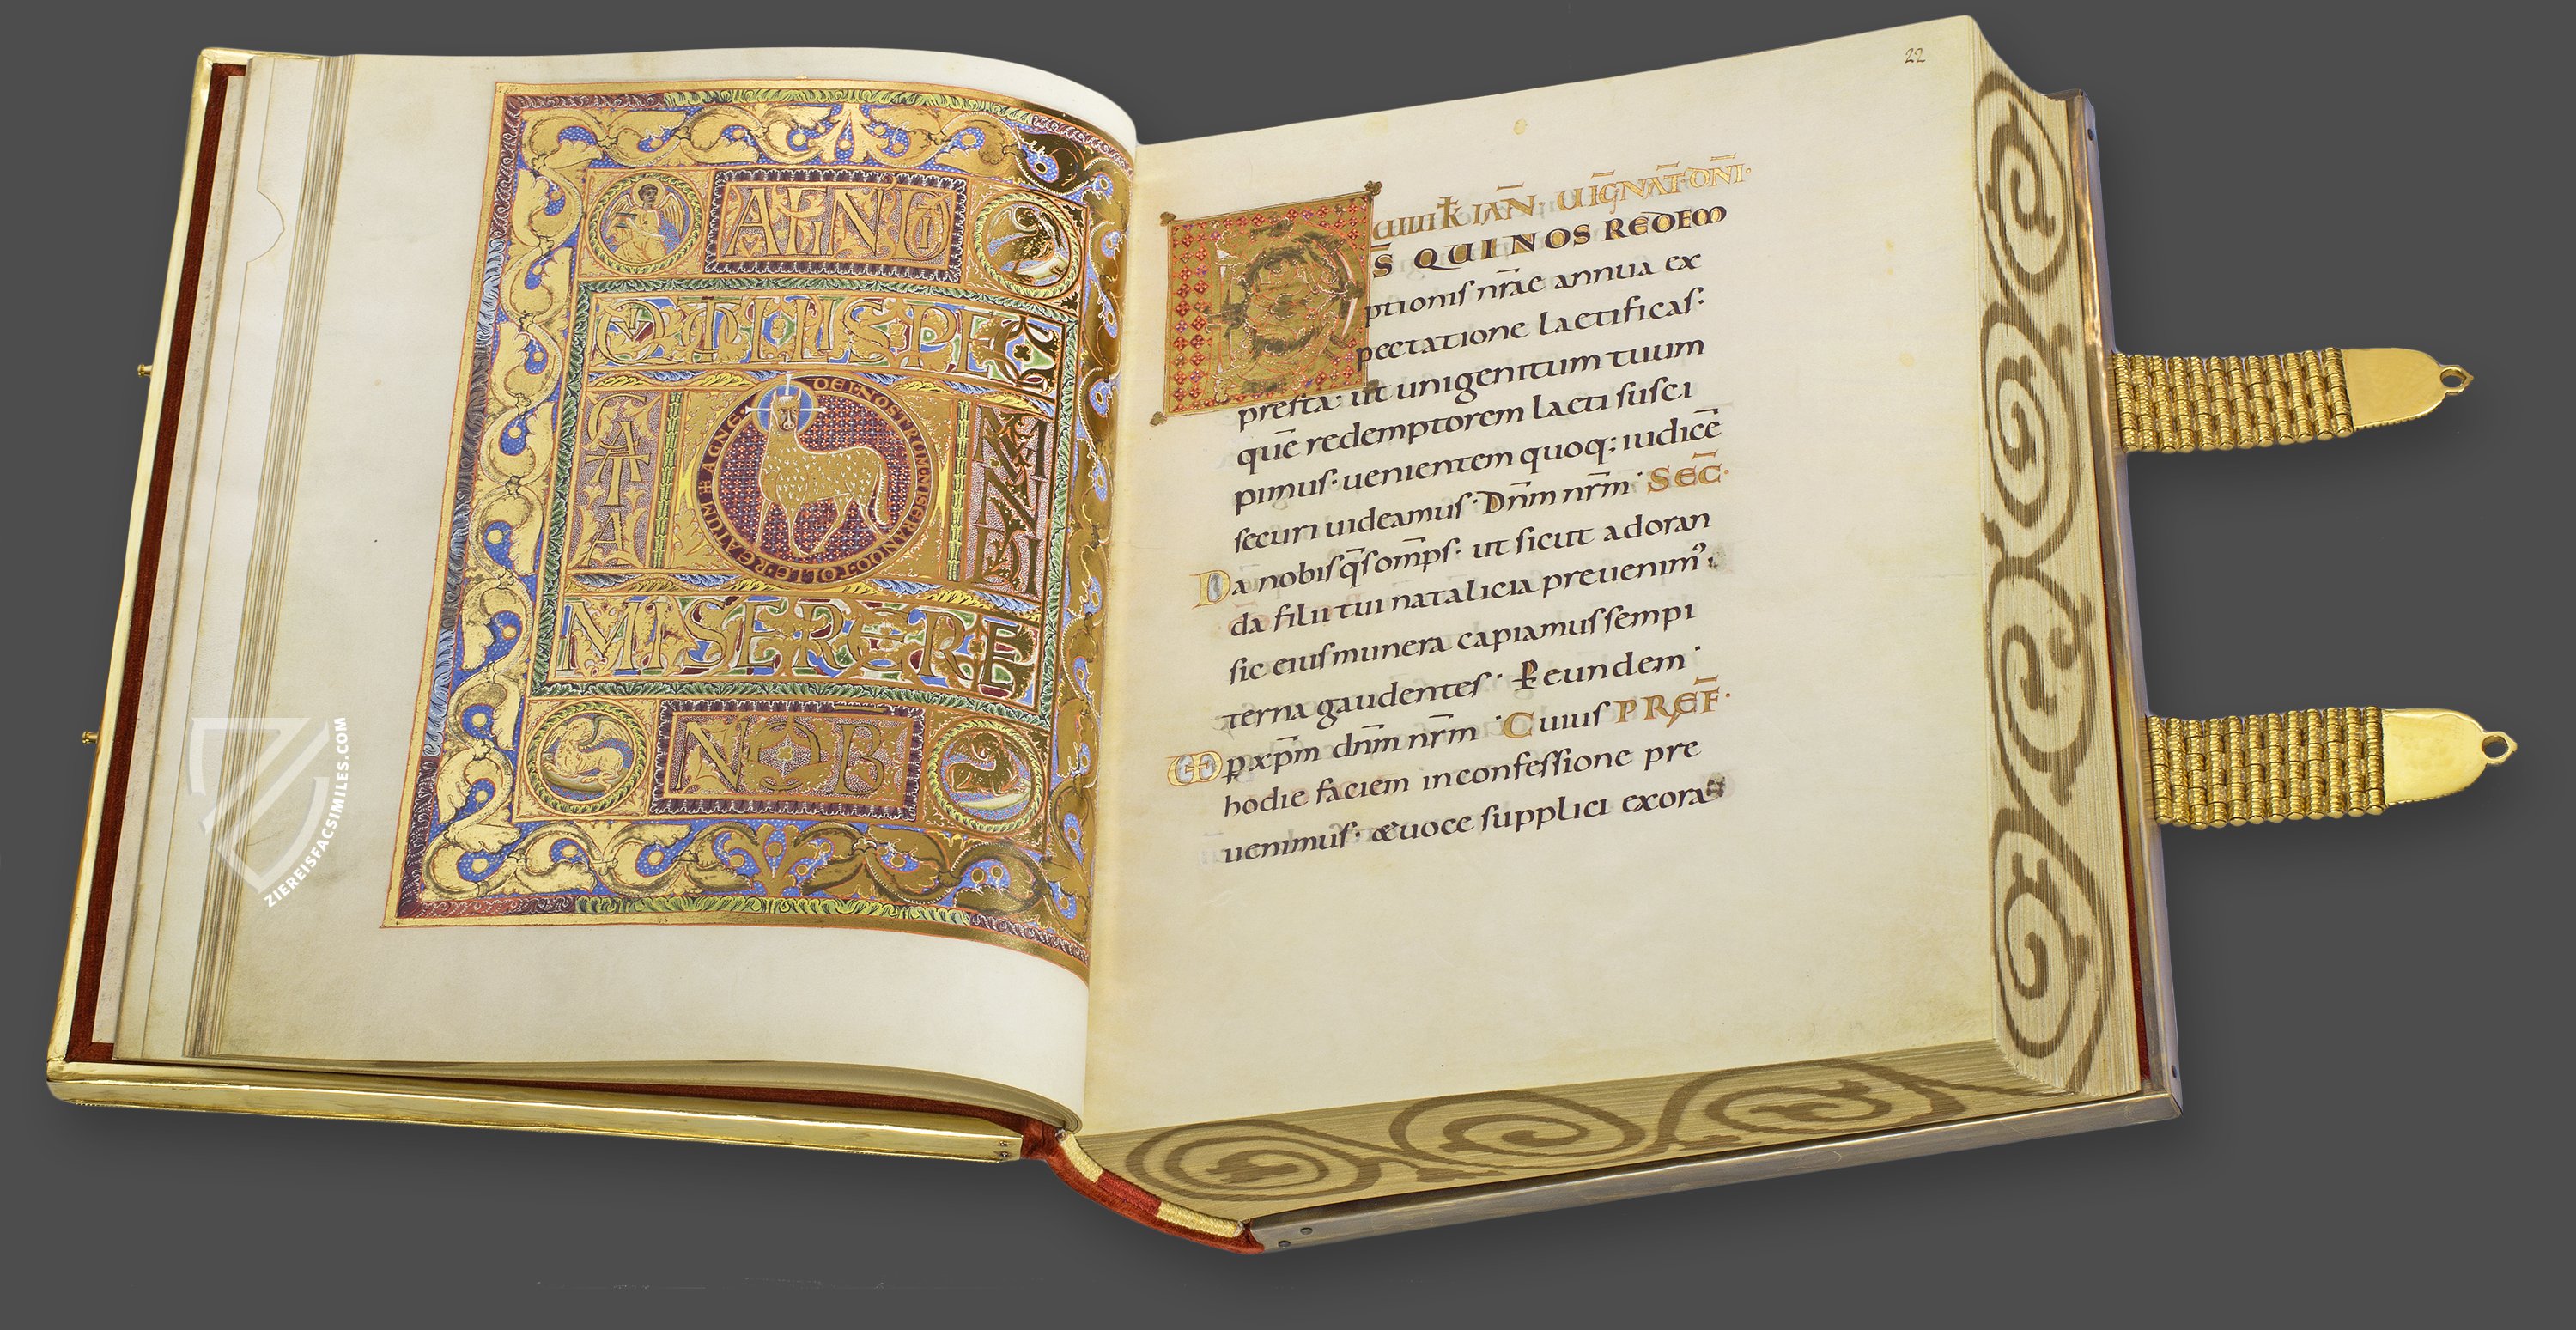 AGN
QUI TOLLIS PEC
CATA
MUNDI
+ AGNE· DEI NOSTRUM· MISERANDO· TOLLE· REATUM
MISERERE
NOB
22
VIIII K̄ IAN̄ · UIGNAT̄ DN̄I·
D̄S QUI NOS REDEM
ptionis nr̄ae annua ex
pectatione laetificas·
presta· ut unigenitum tuum
quē redemptorem laeti susci
pimus· uenientem quoq; iudicē
securi uideamus· Dn̄m nr̄m· SEC̄·
Da nobis qs̄ omp̄s· ut sicut adoran
da filii tui natalicia preuenim᾿
sic eius munera capiamus sempi
terna gaudentes· P̱ eundem·
P̱ xp̄m dn̄m nr̄m· Cuius PREF̄·
hodie faciem in confessione pre
uenimus· & uoce supplici exora
ZIEREISFACSIMILES.COM